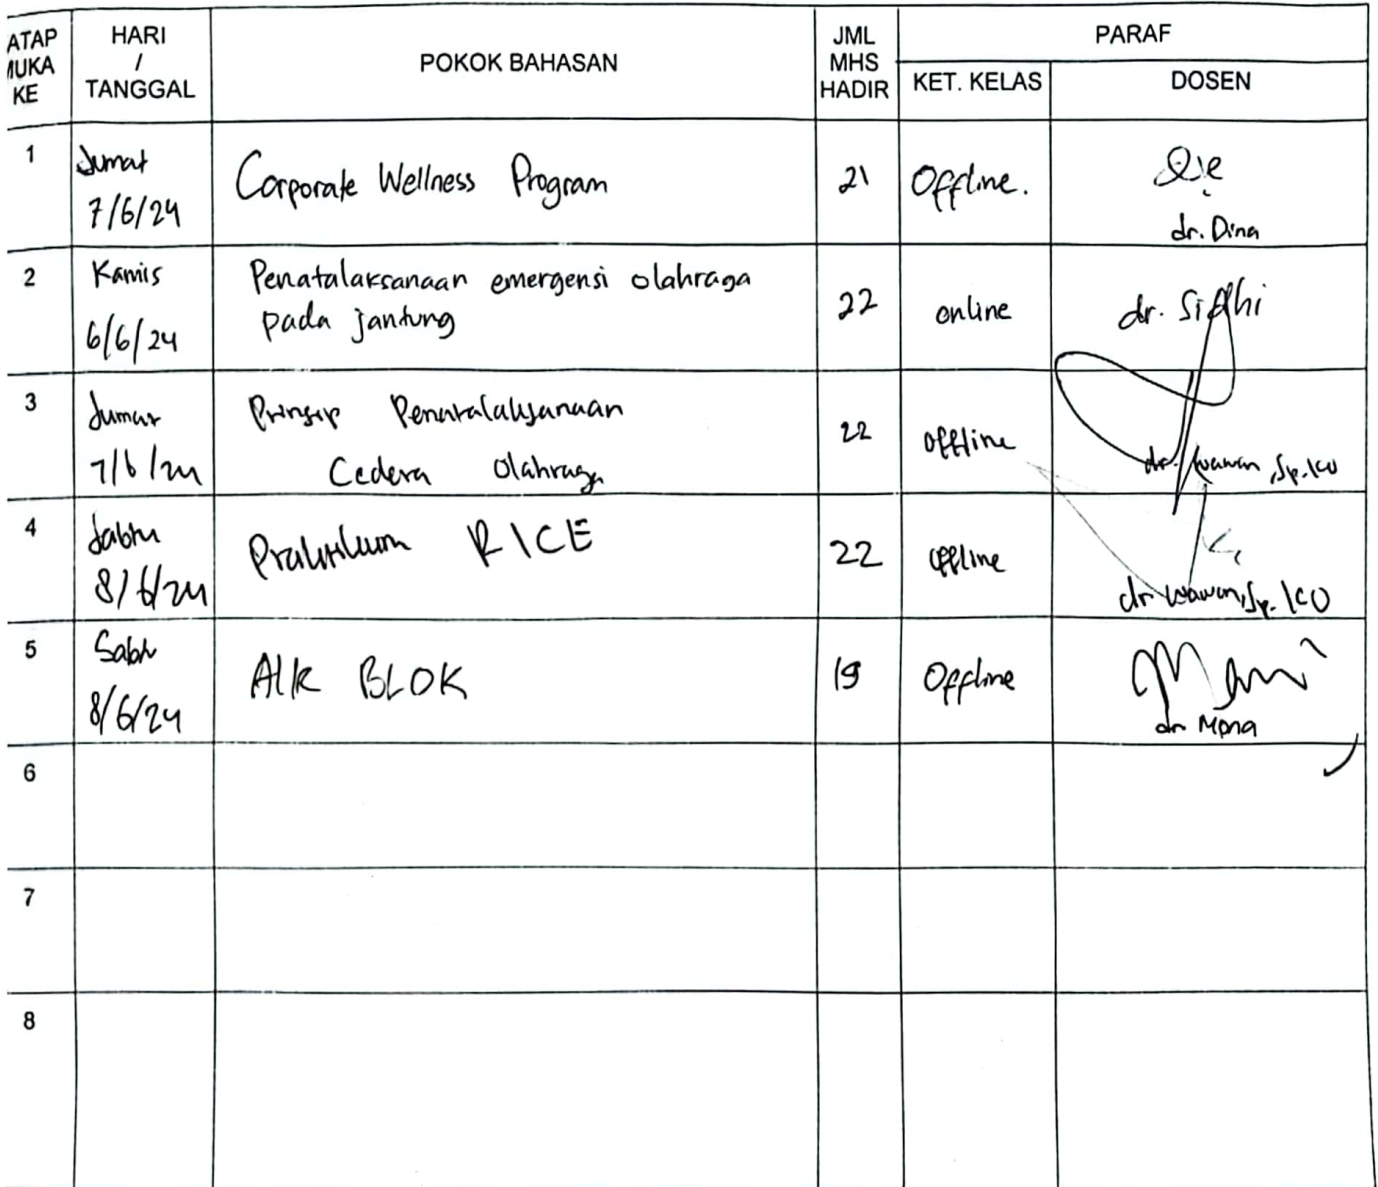 ATAP
MUKA
KE
HARI
/
TANGGAL
POKOK BAHASAN
JML
MHS
HADIR
PARAF
KET. KELAS
DOSEN
1
Jumat
7/6/24
Corporate Wellness Program
21
Offline.
dr. Dina
2
Kamis
6/6/24
Penatalaksanaan emergensi olahraga
pada jantung
22
online
dr. Sidhi
3
Jumat
7/6/24
Prinsip Penatalaksanaan
Cedera Olahraga
22
offline
dr. Wawan, Sp.KO
4
Sabtu
8/6/24
Praktikum RICE
22
offline
dr Wawan, Sp. KO
5
Sabtu
8/6/24
BLOK
19
Offline
dr Mona
6
7
8